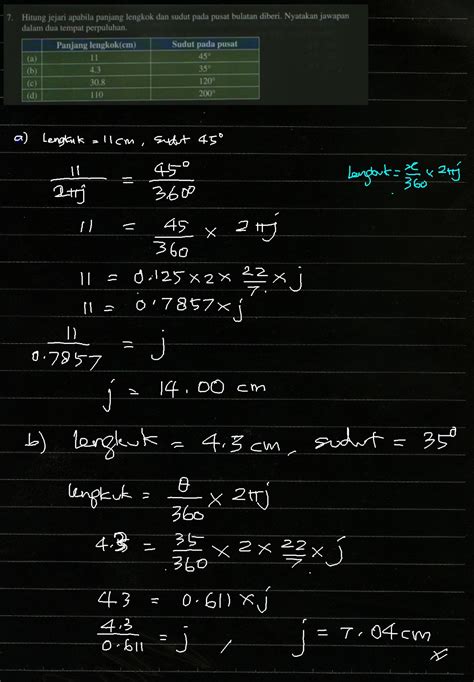 7. Hitung jejari apabila panjang lengkok dan sudut pada pusat bulatan diberi. Nyatakan jawapan
dalam dua tempat perpuluhan.
Panjang lengkok(cm) Sudut pada pusat
(a) 11 45°
(b) 4.3 35°
(c) 30.8 120°
(d) 110 200°
a) Lengkuk = 11cm, sudut 45°
11/2πj = 45°/360°
Lengkuk = x/360 × 2πj
11 = 45/360 × 2πj
11 = 0.125×2× 22/7 × j
11 = 0.7857×j
11/0.7857 = j
j = 14.00 cm
b) Lengkuk = 4.3cm, sudut = 35°
lengkuk = θ/360 × 2πj
4.3 = 35/360 × 2 × 22/7 × j
43 = 0.611 × j
4.3/0.611 = j , j = 7.04cm